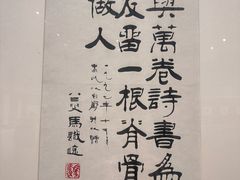 與萬卷詩書為
友留一根脊骨
做人
一九九九年十月
八五叟馬識途